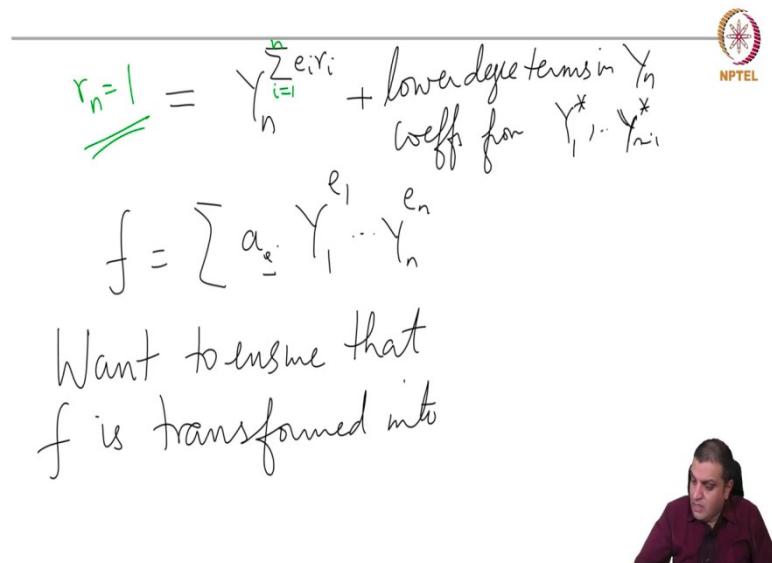 r_n = 1 = Y_n^{\sum_{i=1}^{n} e_i r_i} + lower degree terms in Y_n
coeffs from Y_1^*, .. Y_{n-1}^*
f = \sum a_{\underline{e}} Y_1^{e_1} ... Y_n^{e_n}
Want to ensure that
f is transformed into
NPTEL